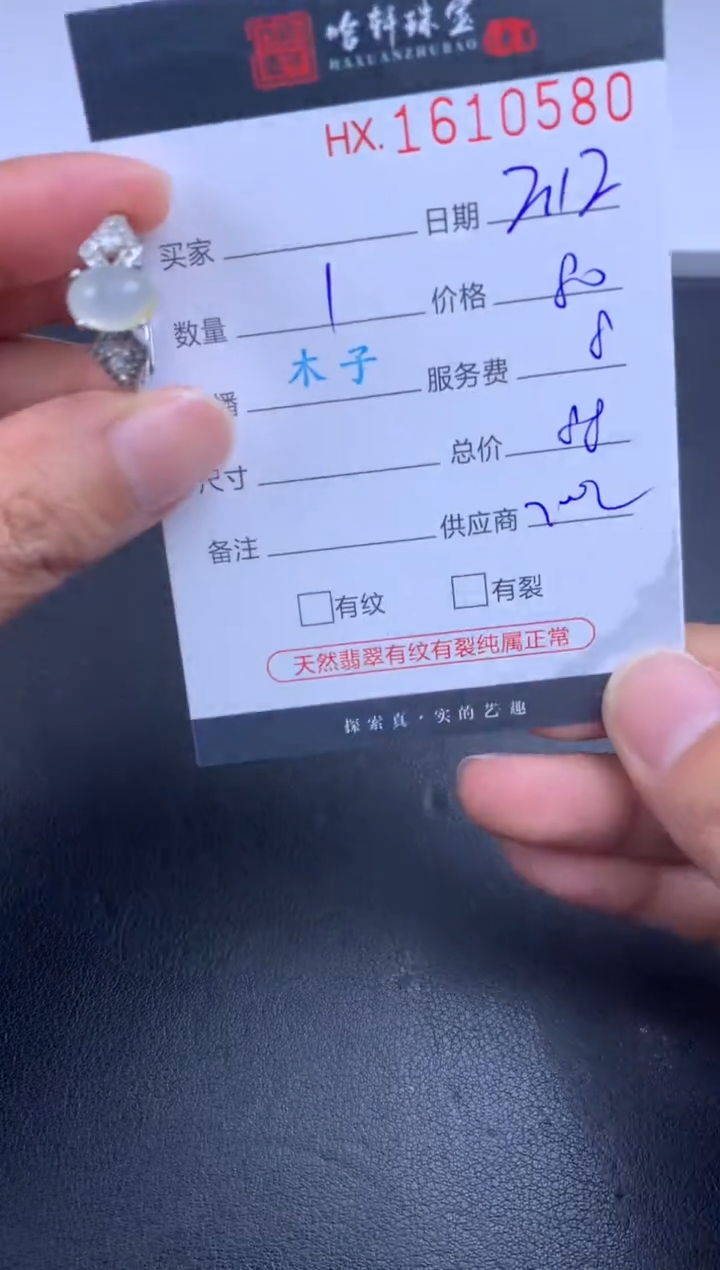 哈轩珠宝
HAXUANZHUBAO
HX.1610580
买家 日期 2112
数量 1 价格 80
播 木子 服务费 8
尺寸 总价 88
备注 供应商
有纹 有裂
天然翡翠有纹有裂纯属正常
探索真·实的艺趣